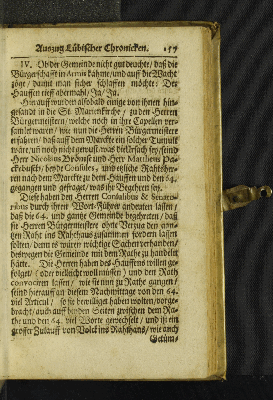 Auszug Lübischer Chronicken. 157
IV. Ob der Gemeinde nicht gut deuchte / daß die
Bürgerschafft in Armis kähme / und auff die Wacht
zöge / damit man sicher schlaffen möchte: Der
Hauffen rieff abermahl / Ja / Ja.
Hierauff wurden alsobald einige von ihnen hin-
gesandt in die St. Marienkirche / zu den Herren
Bürgermeistern / welche noch in ihre Capelen ver-
samlet waren / wie nun die Herren Bürgermeistere
erfahren / daß auff dem Marckte ein solcher Tumult
wäre / und noch nicht gewust / was die Ursach sey / seind
Herr Nicolaus Brömse und Herr Mattheus Pa-
ckebusch / beyde Consules, und etzliche Rahtsher-
ren nach dem Marckte zu dem Hauffen und den 64.
gegangen und gefraget / was ihr Begehren sey.
Diese haben den Herren Consulibus & Senato-
ribus durch ihren Wort-Führer andeuten lassen /
daß die 64. und gantze Gemeinde begehreten / daß
sie Herren Bürgermeistere ohne Verzug den gan-
tzen Raht ins Rahthaus zusammen fordern lassen
solten / denn es wären wichtige Sachen verhanden /
deswegen die Gemeinde mit dem Rathe zu handeln
hätte. Die Herren haben des Hauffens willen ge-
folget / (oder vielleicht woll müssen) und den Rath
convociren lassen / wie sie nun zu Rathe gangen /
seind hierauff an diesem Nachmittage von den 64.
viel Articul / so sie bewilliget haben wolten / vorge-
bracht / auch auff beyden Seiten zwischen dem Ra-
the und den 64. viel Worte gewechselt / und ist ein
grosser Zulauff von Volck ins Rahthaus / wie auch
Getüm-